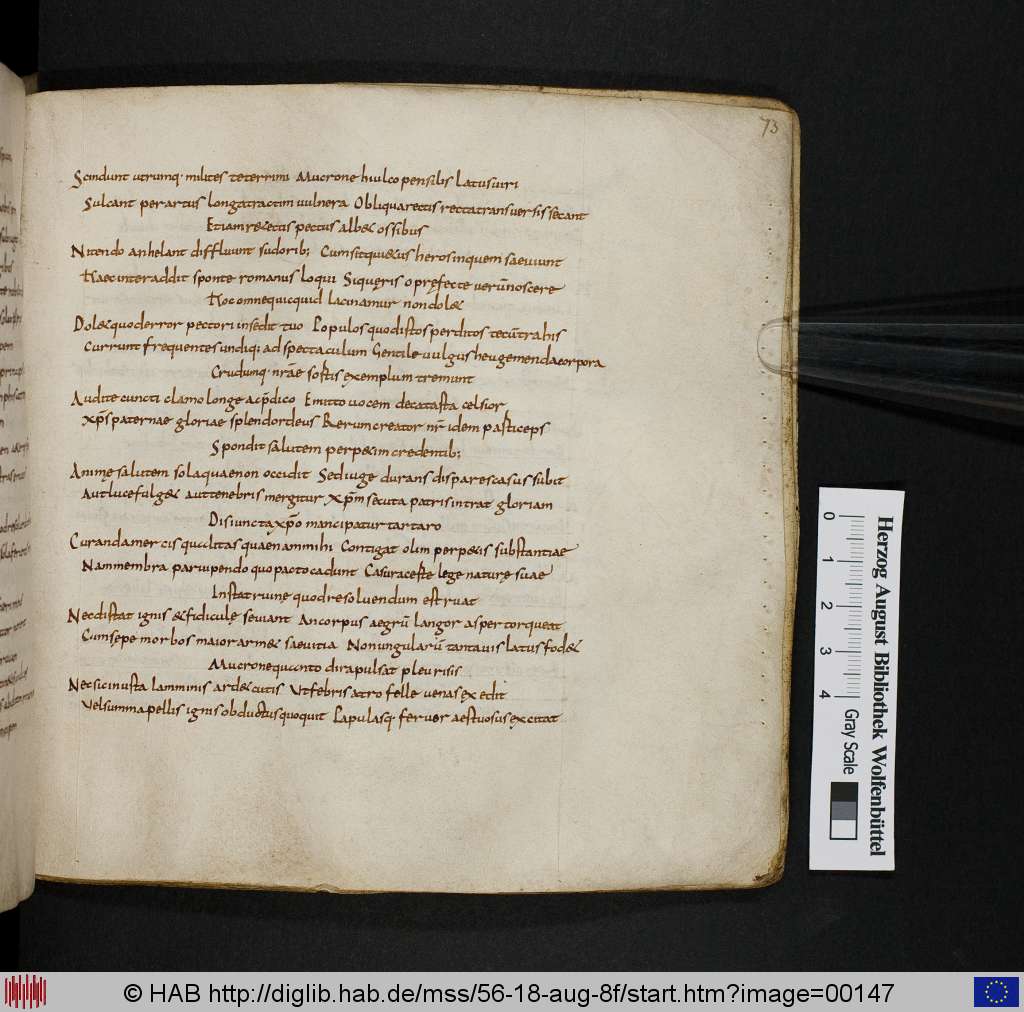 73
Scindunt utrumq· milites teterrimi Mucrone hiulco pensilis latus uiri
Sulcant per artus longa tractim uulnera Obliqua rectis recta transuersis secant
Etiam retectis pectus albet ossibus
Nitendo anhelant diffluunt sudorib; Cum sit quietus heros in quem saeuiunt
Haec inter addit sponte romanus loqui Si quęris o pręfecte uerū noscere
Hoc omne quicquid lacinamur non dolet
Dolet quod error pectori insedit tuo Populos quod istos perditos tecū trahis
Currunt frequentes undiq; ad spectaculum Gentile uulgus heu gemenda corpora
Crudumq· nrāe sostis exemplum tremunt
Audite cuncti clamo longe ac p̄dico Emitto uocem de catasta celsior
xp̄s paternae gloriae splendor deus Rerum creator nr̄ idem pasticeps
Spondit salutem perpetim credentib;
Animę salutem sola quae non occidit Sed iuge durans dispares casus subit
Aut luce fulget aut tenebris mergitur xp̄m secuta patris intrat gloriam
Disiuncta xp̄o mancipatur tartaro
Curanda mercis qualitas quaenam mihi Contigat olim perpetis substantiae
Nam membra parui pendo quo pacto cadunt Casura certe lege naturę suae
Instat ruine quod resoluendum est ruat
Nec distat ignis et fidiculę seuiant An corpus aegrū langor asper torqueat
Cum sępe morbos maior armet saeuitia Non ungularū tanta uis latus fodet
Mucrone quanto dira pulsat pleurisis
Nec sic inusta lamminis ardet cutis Ut febris atro felle uenas exedit
Vel summa pellis ignis obductus quoquit Papulasq· feruor aestuosus excitat
Herzog August Bibliothek Wolfenbüttel
0 1 2 3 4
Gray Scale
© HAB http://diglib.hab.de/mss/56-18-aug-8f/start.htm?image=00147